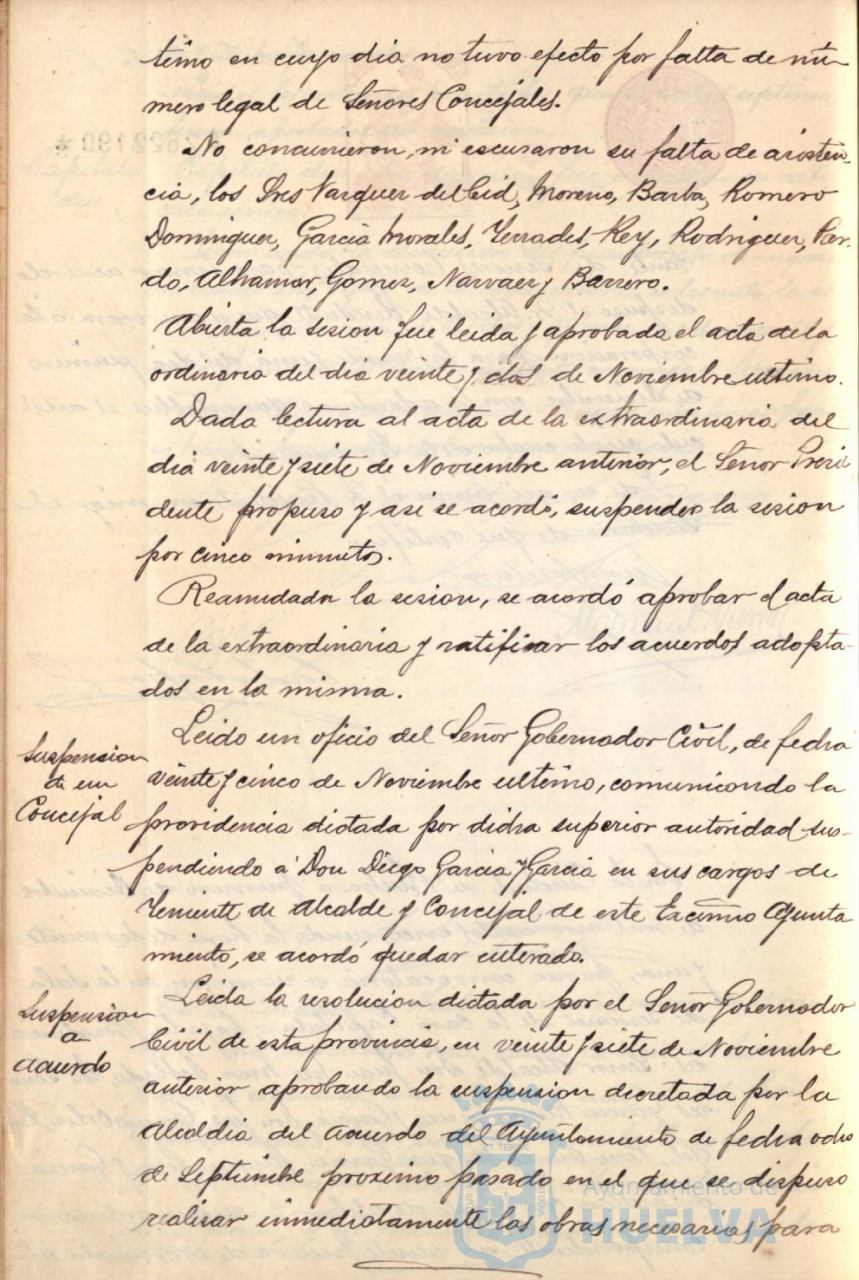 timo en cuyo dia no tuvo efecto por falta de nú-
mero legal de Señores Concejales.
No concurrieron, ni escusaron su falta de asisten-
cia, los Sres Vazquez del Cid, Moreno, Barba, Romero
Dominguez, Garcia Morales, Terrades, Rey, Rodriguez, Par-
do, Alhamar, Gomez, Narvaez y Barrero.
Abierta la sesion fué leida y aprobada el acta de la
ordinaria del dia veinte y dos de Noviembre ultimo.
Dada lectura al acta de la extraordinaria del
dia veinte y siete de Noviembre anterior, el Señor Presi
dente propuso y asi se acordó, suspender la sesion
por cinco minutos.
Reanudada la sesion, se acordó aprobar el acta
de la extraordinaria y ratificar los acuerdos adopta-
dos en la misma.
Suspension
de un
Concejal
Leido un oficio del Señor Gobernador Civil, de fecha
veinte y cinco de Noviembre ultimo, comunicando la
providencia dictada por dicha superior autoridad sus-
pendiendo á Don Diego Garcia y Garcia en sus cargos de
Teniente de Alcalde y Concejal de este Excmo Ayunta
miento, se acordó quedar enterado.
Suspension
a
acuerdo
Leida la resolucion dictada por el Señor Gobernador
Civil de esta provincia, en veinte y siete de Noviembre
anterior aprobando la suspension decretada por la
Alcaldia del acuerdo del Ayuntamiento de fecha ocho
de Septiembre proximo pasado en el que se dispuso
realizar inmediatamente las obras necesarias para
Ayuntamiento de
HUELVA